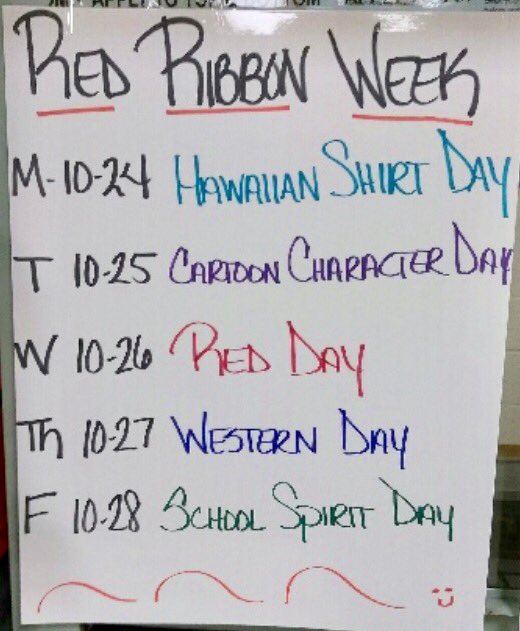 RED RIBBON WEEK
M-10-24 HAWAIIAN SHIRT DAY
T 10-25 CARTOON CHARACTER DAY
W 10-26 RED DAY
Th 10-27 WESTERN DAY
F 10-28 SCHOOL SPIRIT DAY